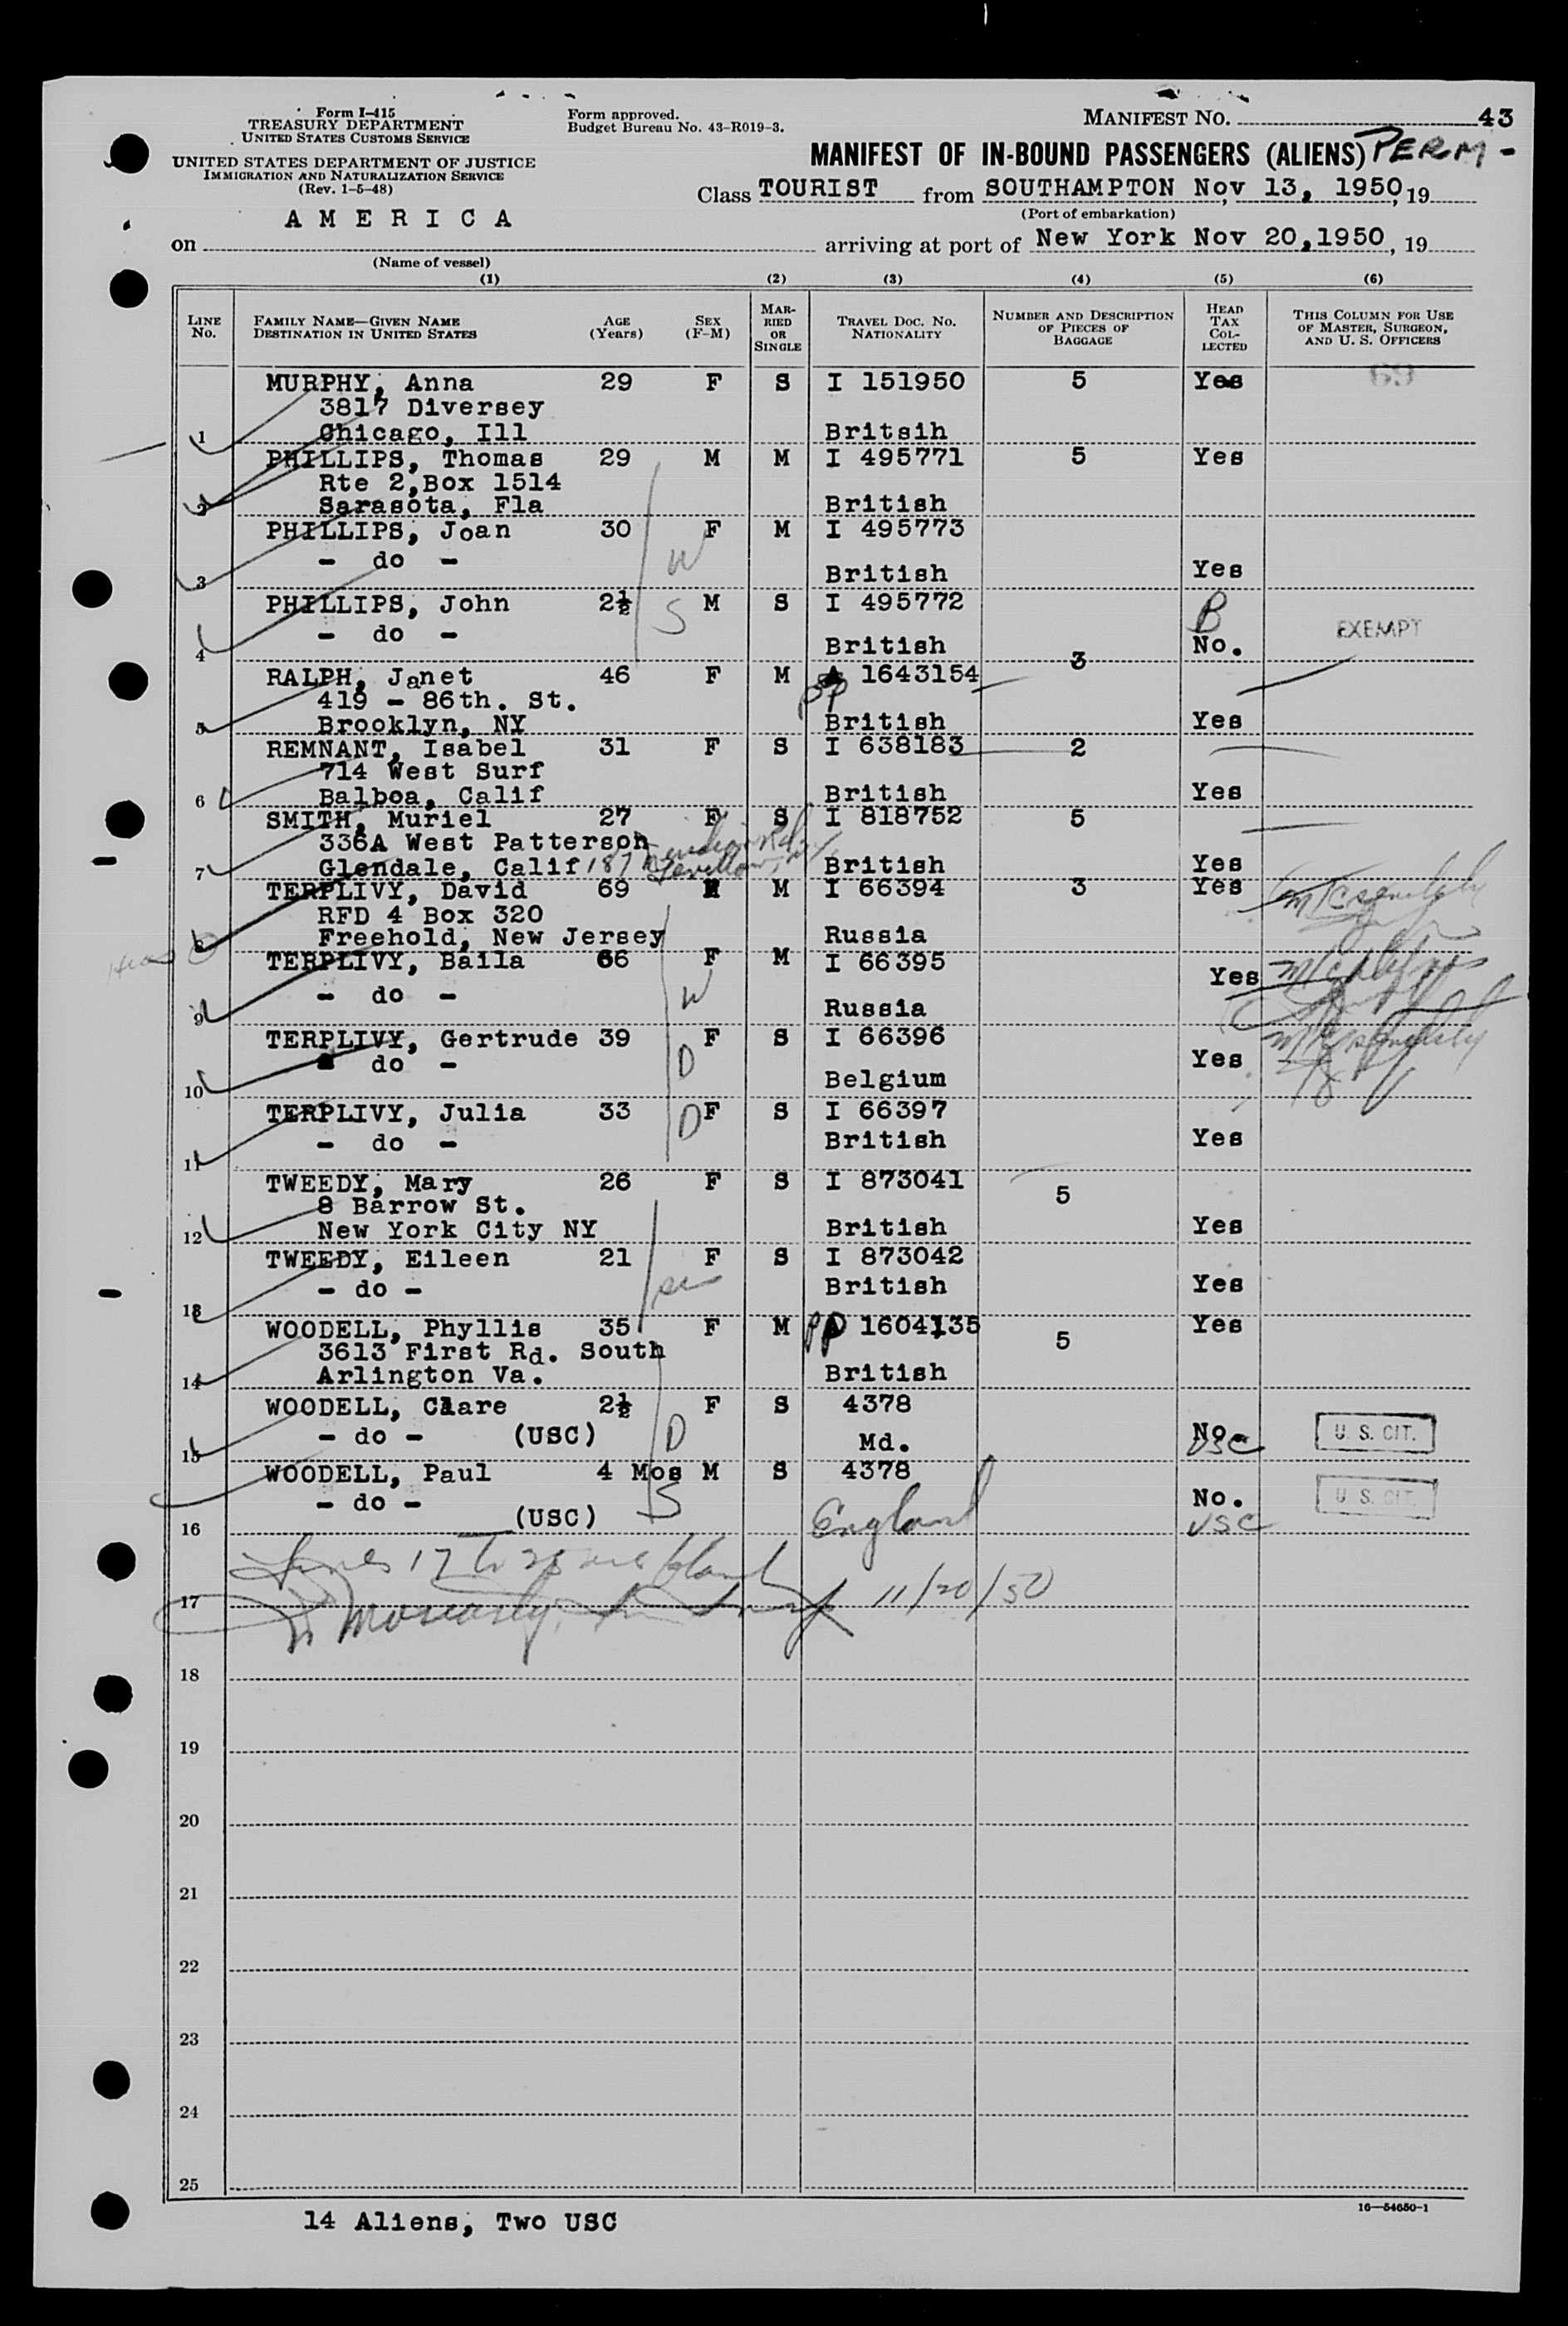 Form I-415
TREASURY DEPARTMENT
UNITED STATES CUSTOMS SERVICE
UNITED STATES DEPARTMENT OF JUSTICE
IMMIGRATION AND NATURALIZATION SERVICE
(Rev. 1-5-48)
Form approved.
Budget Bureau No. 43-R019-3.
MANIFEST NO. 43
MANIFEST OF IN-BOUND PASSENGERS (ALIENS) PERM-
Class TOURIST from SOUTHAMPTON Nov 13, 1950, 19
(Port of embarkation)
on A M E R I C A arriving at port of New York Nov 20,1950, 19
(Name of vessel)
(1) (2) (3) (4) (5) (6)
LINE No. FAMILY NAME—GIVEN NAME DESTINATION IN UNITED STATES AGE (Years) SEX (F-M) MARRIED OR SINGLE TRAVEL DOC. NO. NATIONALITY NUMBER AND DESCRIPTION OF PIECES OF BAGGAGE HEAD TAX COLLECTED THIS COLUMN FOR USE OF MASTER, SURGEON, AND U. S. OFFICERS
MURPHY, Anna 29 F S I 151950 5 Yes 69
3817 Diversey
1 Chicago, Ill Britsih
PHILLIPS, Thomas 29 M M I 495771 5 Yes
Rte 2,Box 1514
2 Sarasota, Fla British
PHILLIPS, Joan 30 F M I 495773
- do - W
3 British Yes
PHILLIPS, John 2½ M S I 495772 B
- do - S EXEMPT
4 British No.
RALPH, Janet 46 F M PP 1643154 3
419 - 86th. St.
5 Brooklyn, NY British Yes
REMNANT, Isabel 31 F S I 638183 2
714 West Surf
6 Balboa, Calif British Yes
SMITH, Muriel 27 F S I 818752 5
336A West Patterson
7 Glendale, Calif 187 British Yes
TERPLIVY, David 69 M M I 66394 3 Yes
RFD 4 Box 320
8 Freehold, New Jersey Russia
TERPLIVY, Baila 66 F M I 66395 Yes
- do - W
9 Russia
TERPLIVY, Gertrude 39 F S I 66396
do - D Yes
10 Belgium
TERPLIVY, Julia 33 D F S I 66397
- do - British Yes
11
TWEEDY, Mary 26 F S I 873041 5
8 Barrow St.
12 New York City NY British Yes
TWEEDY, Eileen 21 F S I 873042
- do - British Yes
13
WOODELL, Phyllis 35 F M PP 1604135 5 Yes
3613 First Rd. South
14 Arlington Va. British
WOODELL, Clare 2½ F S 4378
- do - (USC) D Md. No. U. S. CIT.
15 USC
WOODELL, Paul 4 Mos M S 4378
- do - S No. U. S. CIT.
16 (USC) England USC
Lines 17 to 25 are blank
17 11/20/50
18
19
20
21
22
23
24
25
16—54650-1
14 Aliens, Two USC